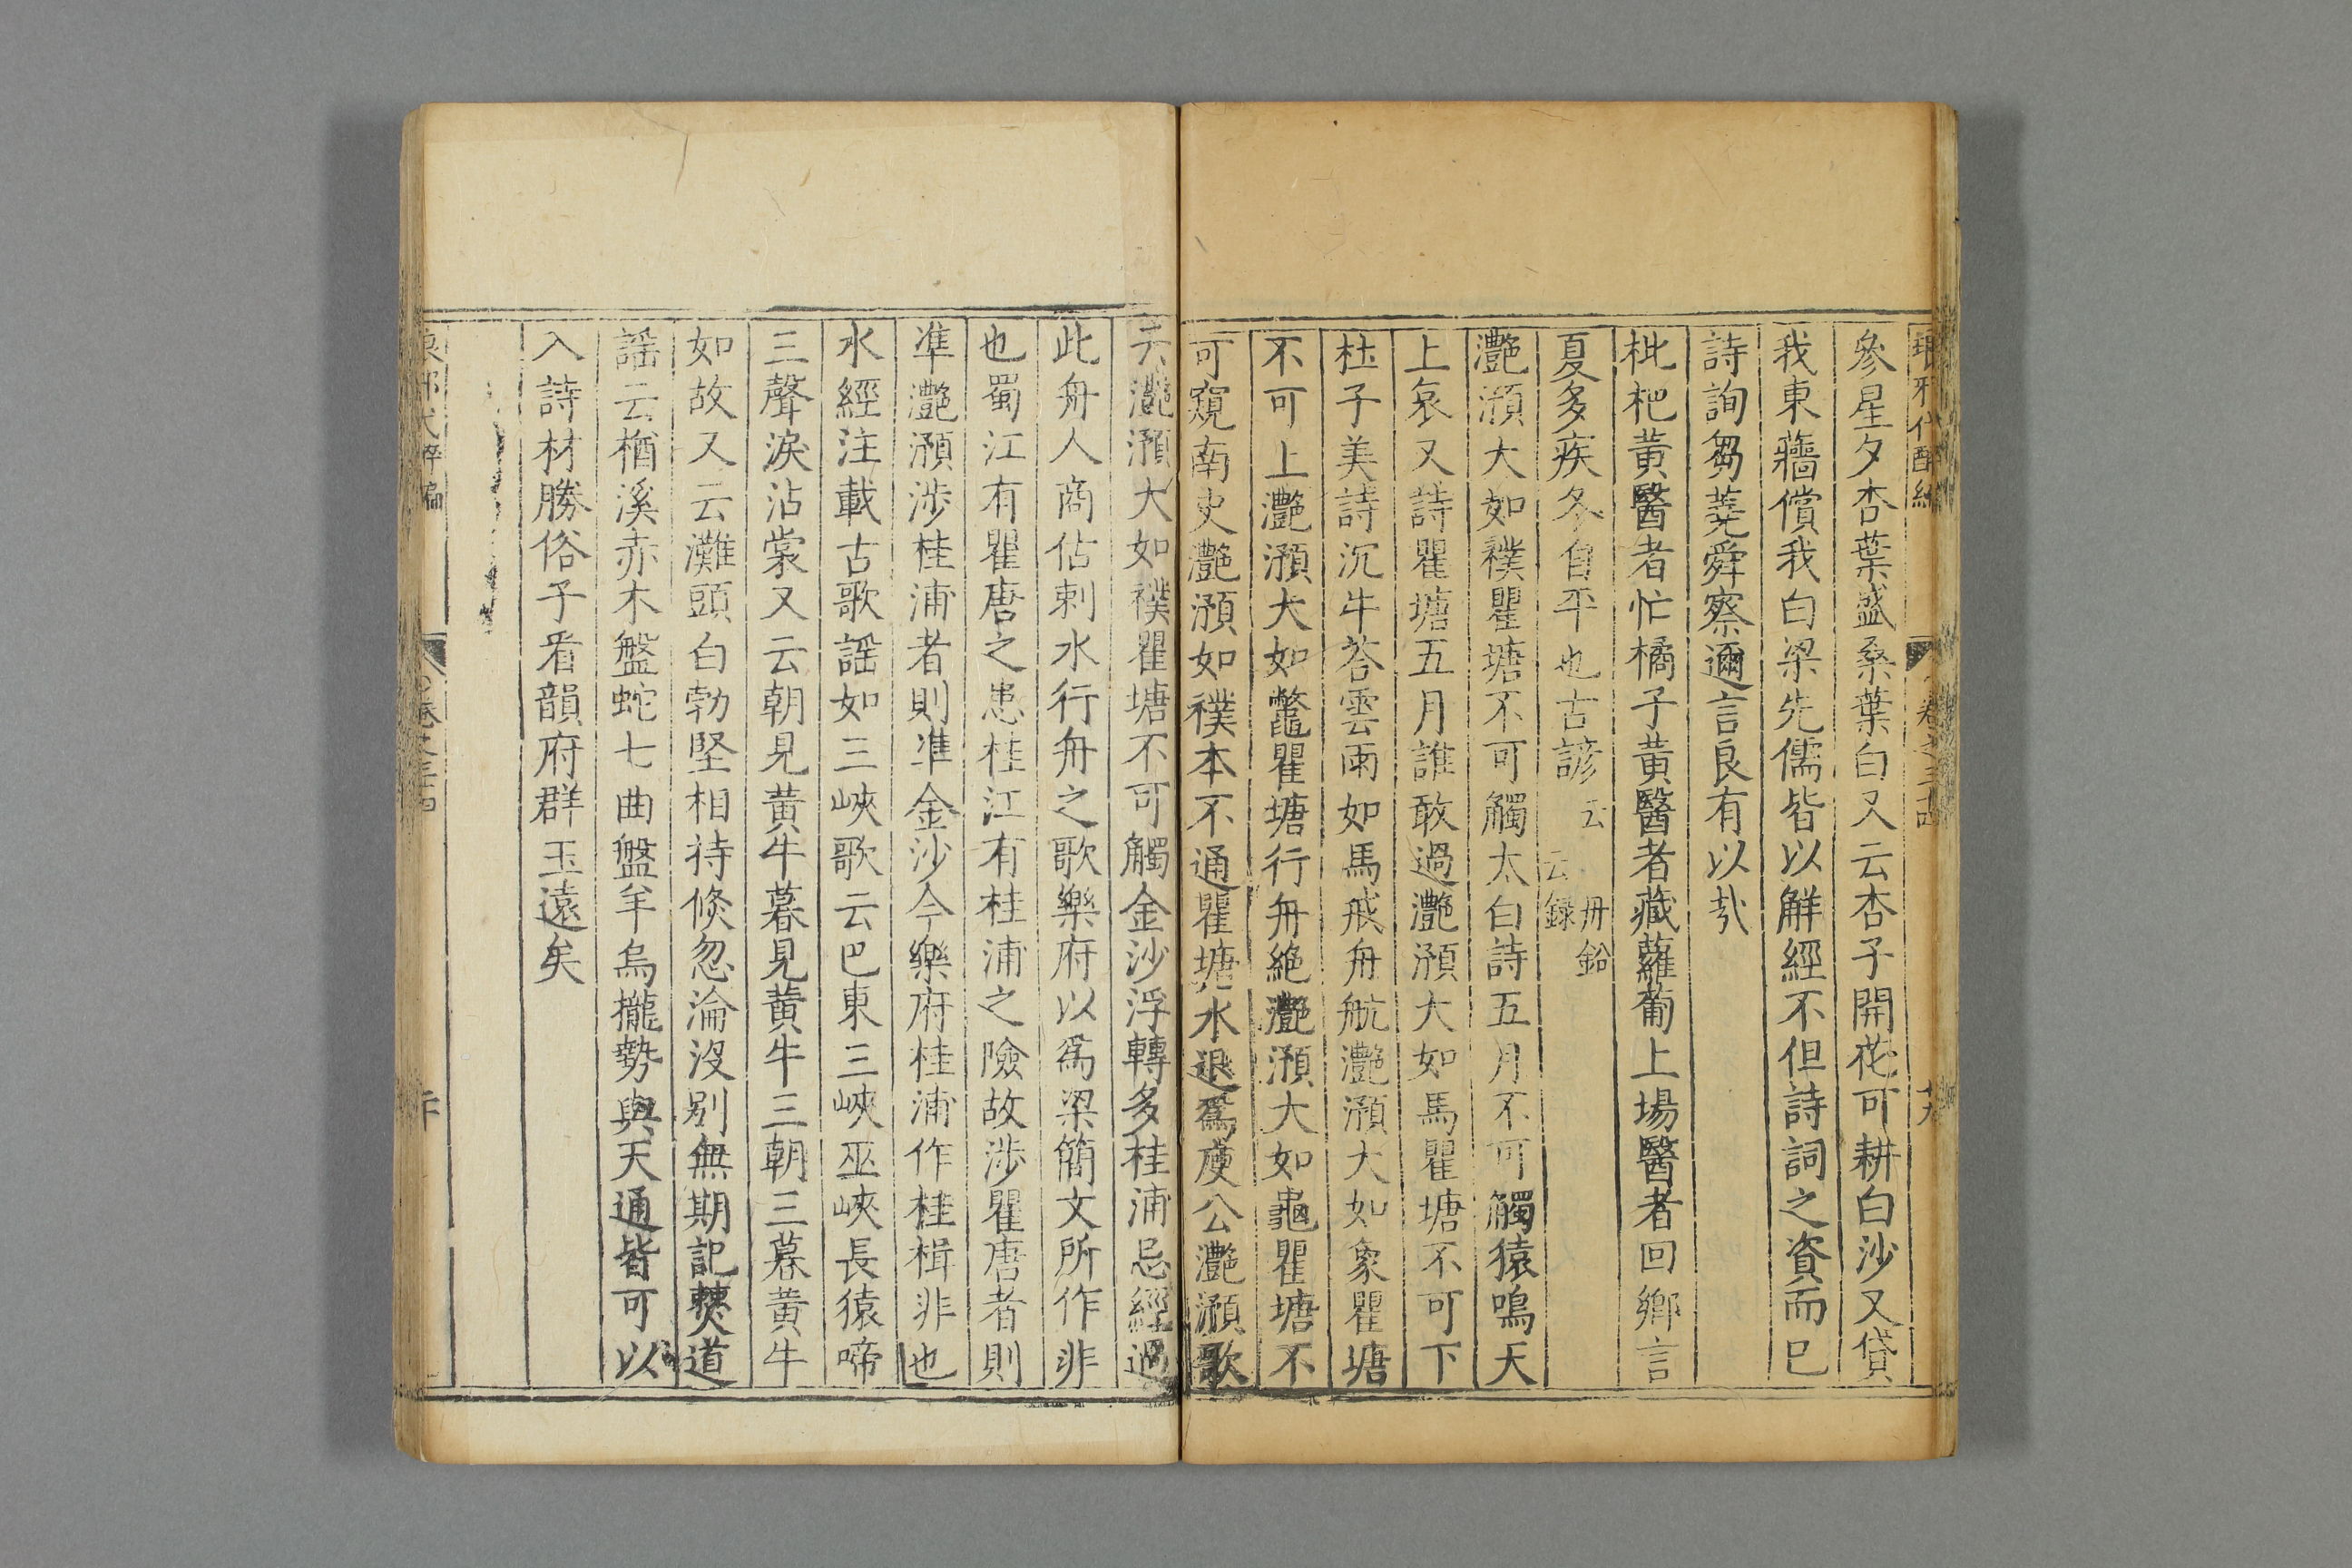 琅邪代醉編 卷之三十四 十九
參星夕杏葉盛桑葉白又云杏子開花可耕白沙又貸
我東蘠償我白粱先儒皆以解經不但詩詞之資而已
詩詢芻蕘舜察邇言良有以㢤
枇杷黃醫者忙橘子黃醫者藏蘿蔔上場醫者回鄉言
夏多疾冬自平也古諺云 丹鉛
云録
灔澦大如襆瞿塘不可觸太白詩五月不可觸猿鳴天
上哀又詩瞿塘五月誰敢過灔澦大如馬瞿塘不可下
杜子美詩沉牛荅雲雨如馬戒舟航灔澦大如象瞿塘
不可上灔澦大如鼈瞿塘行舟絶灔澦大如龜瞿塘不
可窺南史灔澦如襆本不通瞿塘水退爲庾公灔澦歌
云灔澦大如襆瞿塘不可觸金沙浮轉多桂浦忌經過
此舟人商估刺水行舟之歌樂府以爲梁簡文所作非
也蜀江有瞿唐之患桂江有桂浦之險故涉瞿唐者則
準灔澦涉桂浦者則準金沙今樂府桂浦作桂楫非也
水經注載古歌謡如三峽歌云巴東三峽巫峽長猿啼
三聲淚沾裳又云朝見黄牛暮見黄牛三朝三暮黄牛
如故又云灘頭白勃堅相待倐忽淪沒别無期記僰道
謡云楢溪赤木盤蛇七曲盤羊烏攏勢與天通皆可以
入詩材勝俗子看韻府群玉遠矣
卷之三十四